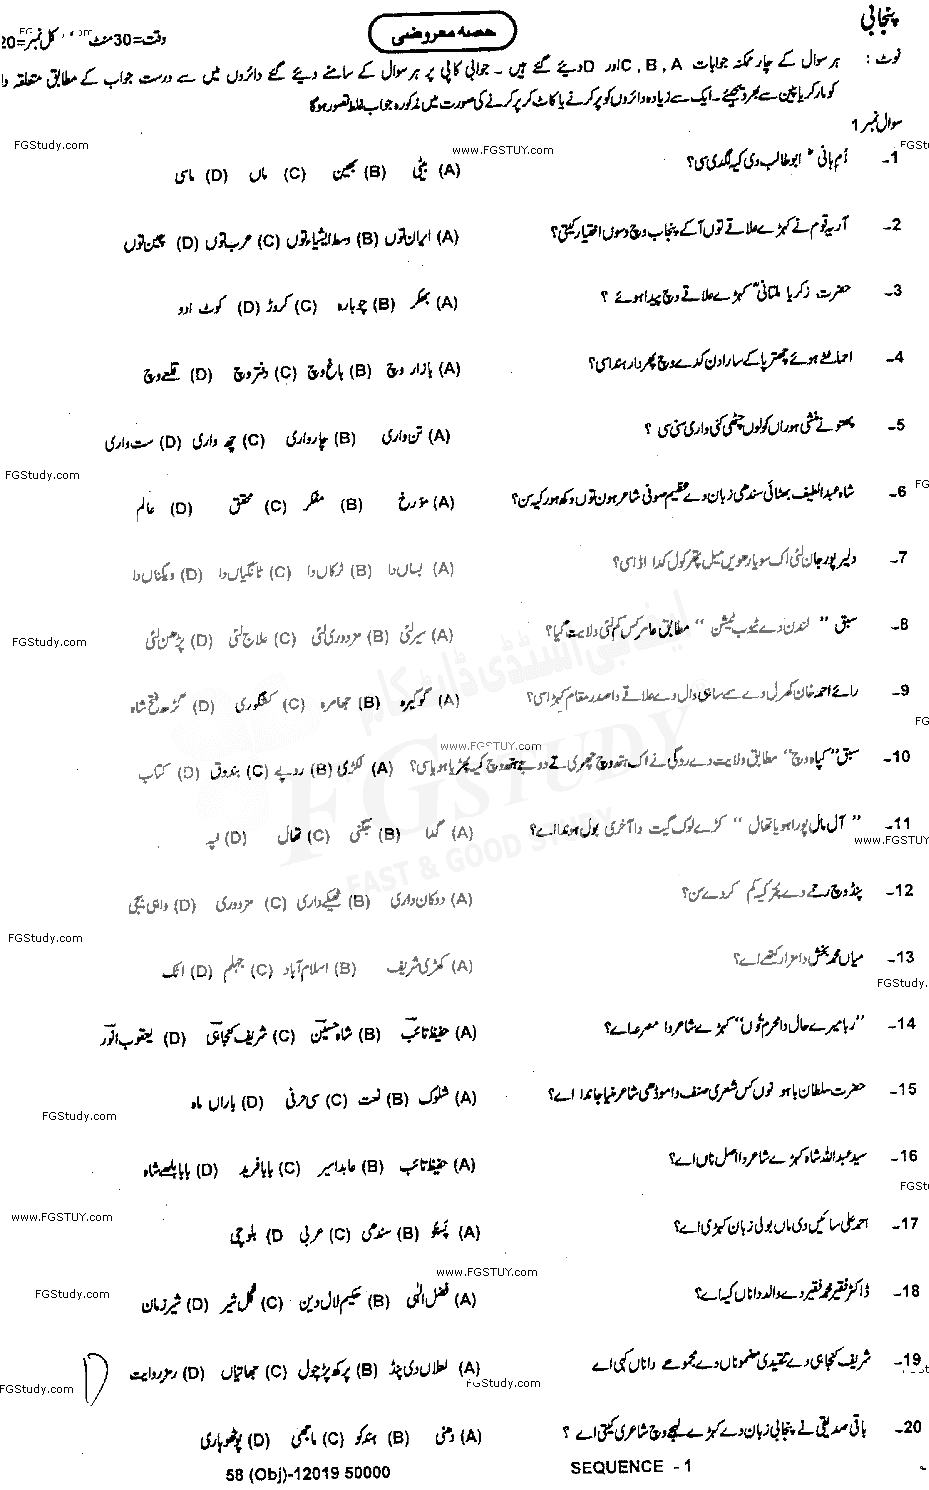 پنجابی
حصہ معروضی
وقت = 30 منٹ کل نمبر = 20
نوٹ : ہر سوال کے چار ممکنہ جوابات A ,B ,C اور D دیئے گئے ہیں ۔ جوابی کاپی پر ہر سوال کے سامنے دیئے گئے دائروں میں سے درست جواب کے مطابق متعلقہ دا
کو مارکر یا پین سے بھر دیجئے۔ ایک سے زیادہ دائروں کو پر کرنے یا کاٹ کر پر کرنے کی صورت میں مذکورہ جواب غلط تصور ہوگا
سوال نمبر 1
FGStudy.com
www.FGSTUY.com
FGStu
1۔ اُم ہانیؓ ابوطالب دی کیہ لگدی سی؟ (A) بیٹی (B) بھین (C) ماں (D) ماسی
2۔ آریہ قوم نے کہڑے علاقے توں آ کے پنجاب وچ وسوں اختیار کیتی؟ (A) ایران توں (B) وسط ایشیاء توں (C) عرب توں (D) چین توں
3۔ حضرت زکریا ملتانیؒ کہڑے علاقے وچ پیدا ہوئے ؟ (A) بھکر (B) چوبارہ (C) کروڑ (D) کوٹ ادو
4۔ اچھا سارا دن کدے وچ پھردا رہندا سی؟ (A) بازار وچ (B) باغ وچ (C) دفتر وچ (D) قلعے وچ
5۔ پھتو نے منشی ہوراں کولوں چٹھی کنی واری سنی سی ؟ (A) تن واری (B) چار واری (C) چھ واری (D) ست واری
FGStudy.com
6۔ شاہ عبداللطیف بھٹائی سندھی زبان دے عظیم صوفی شاعر ہون توں وکھ ہور کیہ سن؟ (A) مؤرخ (B) مفکر (C) محقق (D) عالم
FG
7۔ دلیر پور جان لئی اک سو بارھویں میل پتھر کول کدا اڈا سی؟ (A) بساں دا (B) ٹرکاں دا (C) ٹانگیاں دا (D) ویگناں دا
8۔ سبق " لندن دے ٹیوب ٹیشن " مطابق عامر کس کم لئی ولایت گیا؟ (A) سیر لئی (B) مزدوری لئی (C) علاج لئی (D) پڑھن لئی
FGStudy.com
9۔ رائے احمد خان کھرل دے سے ساہی وال دے علاقے دا صدر مقام کہڑا سی؟ (A) گوگیرہ (B) جھامرہ (C) کنگوری (D) گڑھ فتح شاہ
FG
www.FGSTUY.com
10۔ سبق "کپاہ وچ" مطابق ولایت دے ردگی نے اک ہتھ وچ چھری تے دوجے ہتھ وچ کیہ پھڑیا ہویا سی؟ (A) لکڑی (B) روپے (C) بندوق (D) کتاب
ایف جی اسٹڈی ڈاٹ کام
FGSTUDY
FAST & GOOD STUDY
11۔ " آل مال پورا ہویا تھال " کہڑے لوک گیت دا آخری بول ہوندا اے؟ (A) گدا (B) جگنی (C) تھال (D) ٹپہ
www.FGSTUY
12۔ پنڈ وچ رجے دے پتر کیہ کم کردے سن؟ (A) دوکان داری (B) ٹھیکے داری (C) مزدوری (D) واہی بیجی
FGStudy.com
13۔ میاں محمد بخش دا مزار کتھے اے؟ (A) کھڑی شریف (B) اسلام آباد (C) جہلم (D) اٹک
FGStudy.
14۔ "ربا میرے حال دا محرم توں" کہڑے شاعر دا مصرعہ اے؟ (A) حفیظ تائبؔ (B) شاہ حسینؔ (C) شریف کنجاہیؔ (D) یعقوب انورؔ
15۔ حضرت سلطان باہو نوں کس شعری صنف دا موڈھی شاعر منیا جاندا اے؟ (A) شلوک (B) نعت (C) سی حرفی (D) باراں ماہ
FGStudy.com
16۔ سید عبداللہ شاہ کہڑے شاعر دا اصل ناں اے؟ (A) حفیظ تائب (B) عابد امیر (C) بابا فرید (D) بابا بلھے شاہ
FGStu
www.FGSTUY.com
17۔ احمد علی سائیں دی ماں بولی زبان کہڑی اے؟ (A) پشتو (B) سندھی (C) عربی D) بلوچی
www.FGSTUY.com
18۔ ڈاکٹر فقیر محمد فقیر دے والد دا ناں کیہ اے؟ (A) فضل الٰہی (B) حکیم لال دین (C) گل شیر (D) شیر زمان
FGStudy.com
19۔ شریف کنجاہی دے تنقیدی مضموناں دے مجموعے دا ناں کہی اے (A) لعلاں دی پنڈ (B) پرکھ پڑچول (C) جھاتیاں (D) رمز روایت
FGStudy.com
FGStudy.com
20۔ باقی صدیقی نے پنجابی زبان دے کہڑے لہجے وچ شاعری کیتی اے ؟ (A) دھنی (B) ہندکو (C) ماجھی (D) پوٹھوہاری
58 (Obj)-12019 50000
SEQUENCE - 1